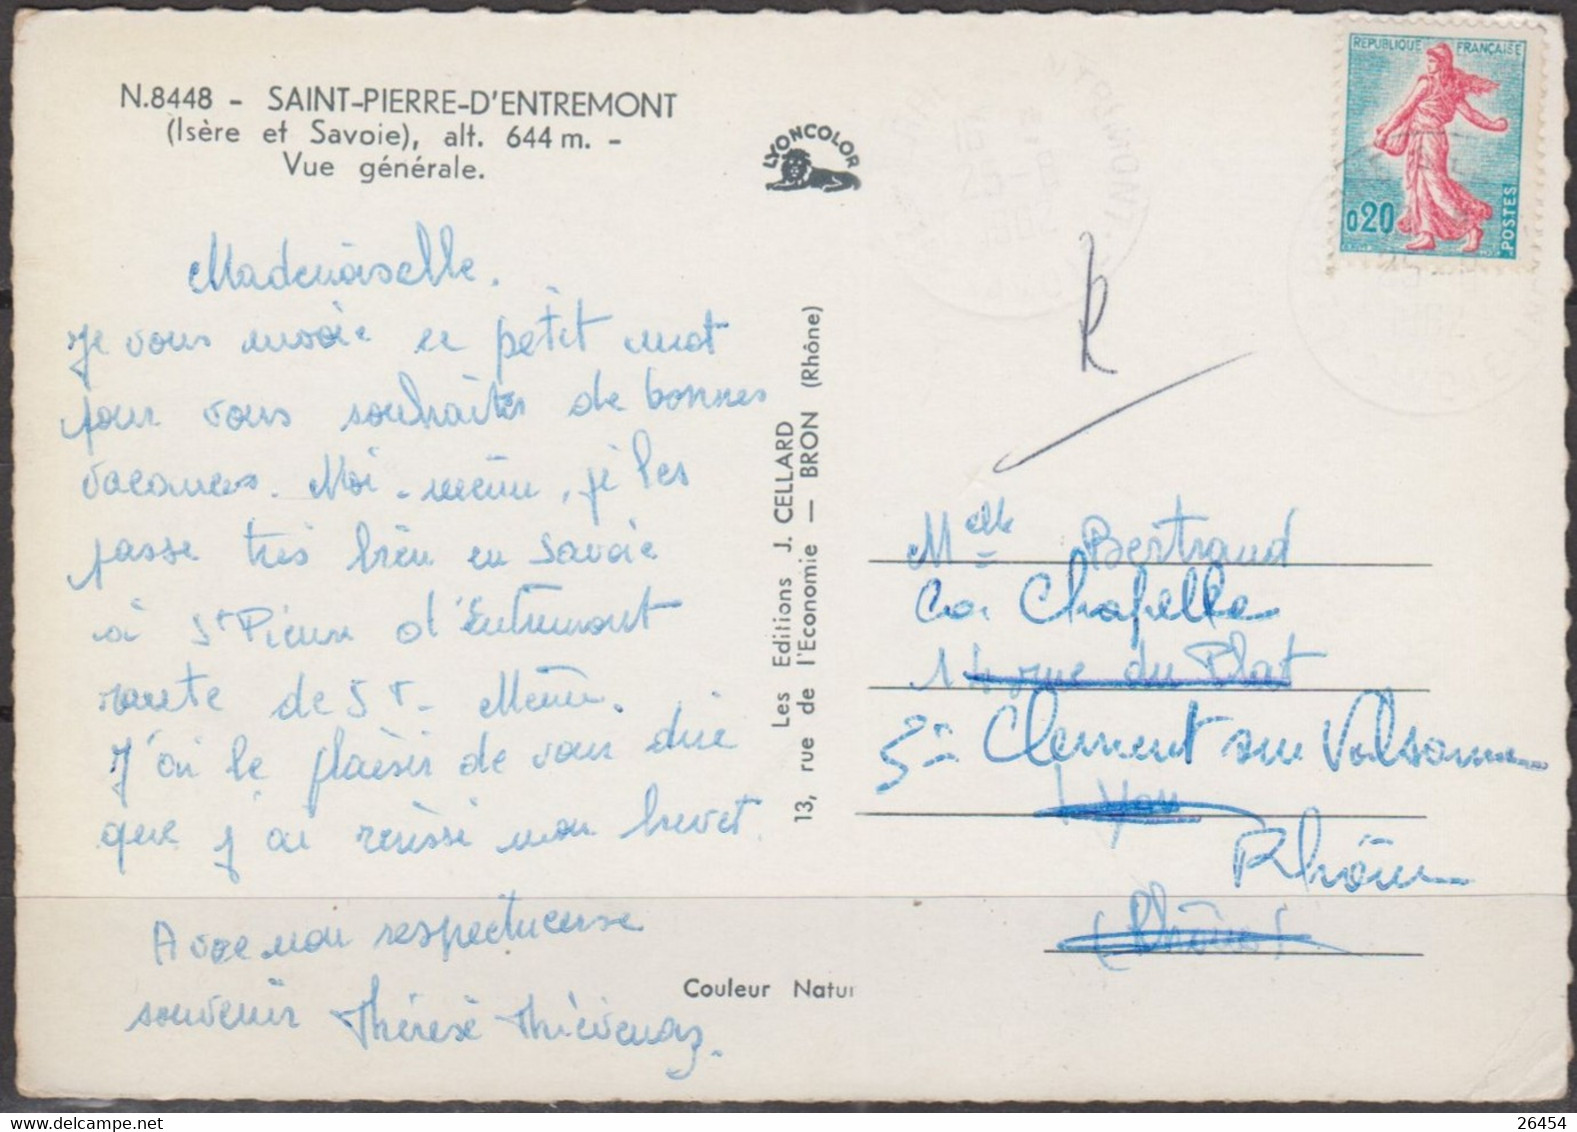 N.8448 - SAINT-PIERRE-D'ENTREMONT
(Isère et Savoie), alt. 644 m. -
Vue générale.
LYONCOLOR
REPUBLIQUE FRANÇAISE
0,20
POSTES
Mademoiselle.
Je vous envoie ce petit mot
pour vous souhaiter de bonnes
vacances. Moi-même, je les
passe très bien en Savoie
à St Pierre d'Entremont
route de St-Même.
J'ai le plaisir de vous dire
que j'ai réussi mon brevet.
Avec mon respectueuse
souvenir Thérèse Thievenaz.
Les Editions J. CELLARD
13, rue de l'Economie — BRON (Rhône)
Couleur Natur
R
Melle Bertrand
Chapelle
14 rue du Plat
St Clement sur Valsonne
Lyon
Rhône
(Rhône)
26454